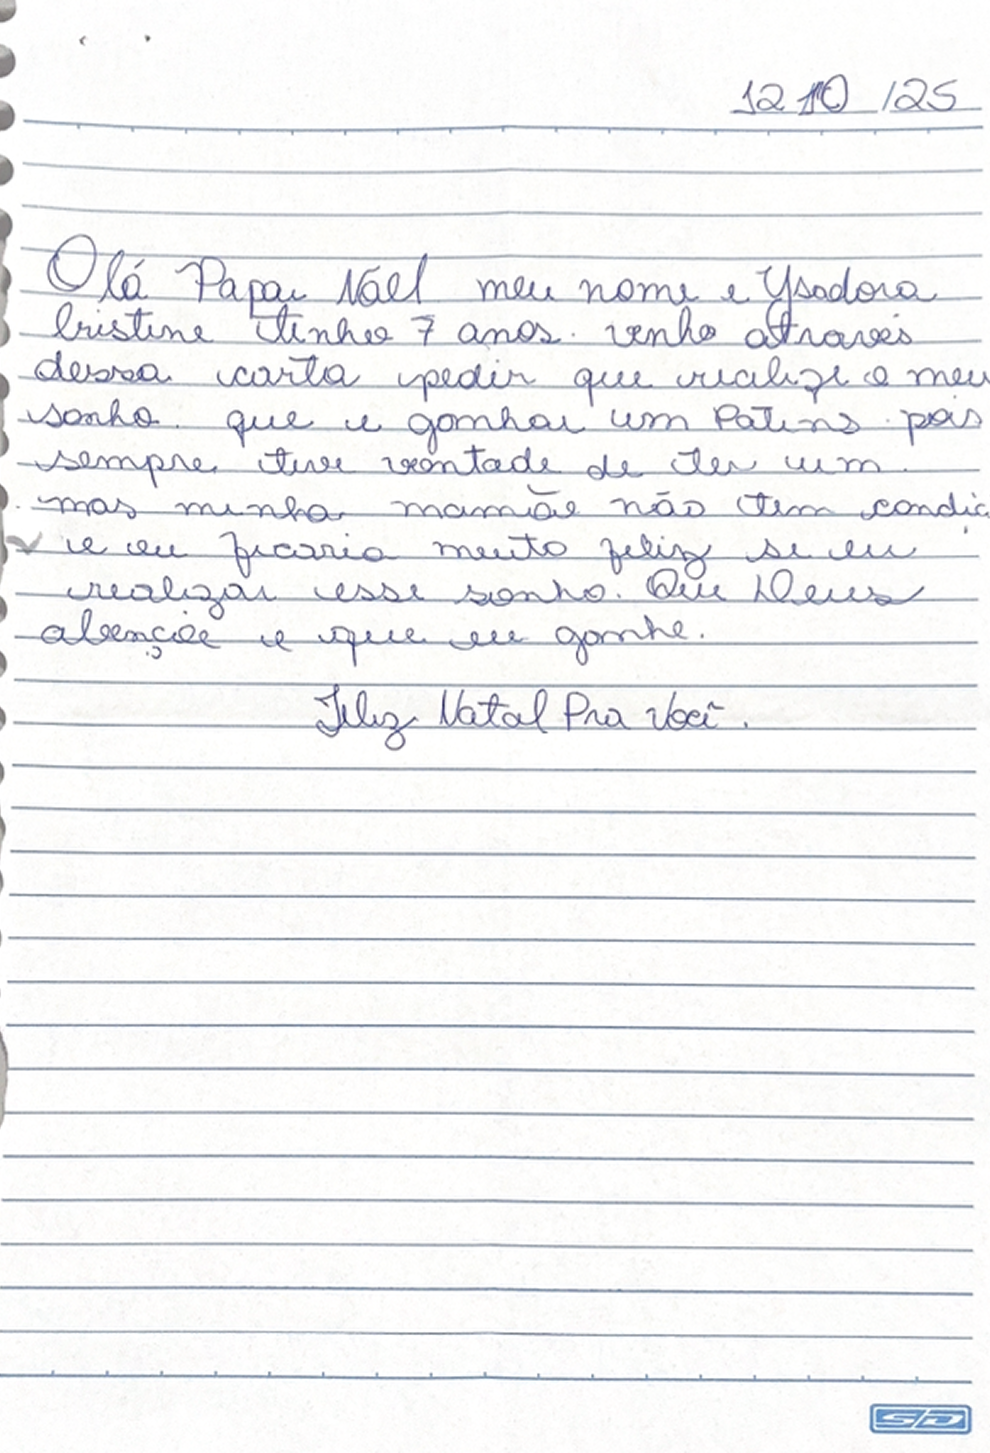 12 10 /25
Olá Papai Nóel meu nome e Ysadora
Cristine tinho 7 anos. venho através
dessa carta pedir que realize o meu
sonho. que e ganhar um Patins. pois
sempre tive vontade de ter um.
mas minha mamãe não tem condiç
e eu ficaria muito feliz se eu
realizar esse sonho. Que Deus
abençõe e que eu ganhe.
Feliz Natal Pra você.
S/D